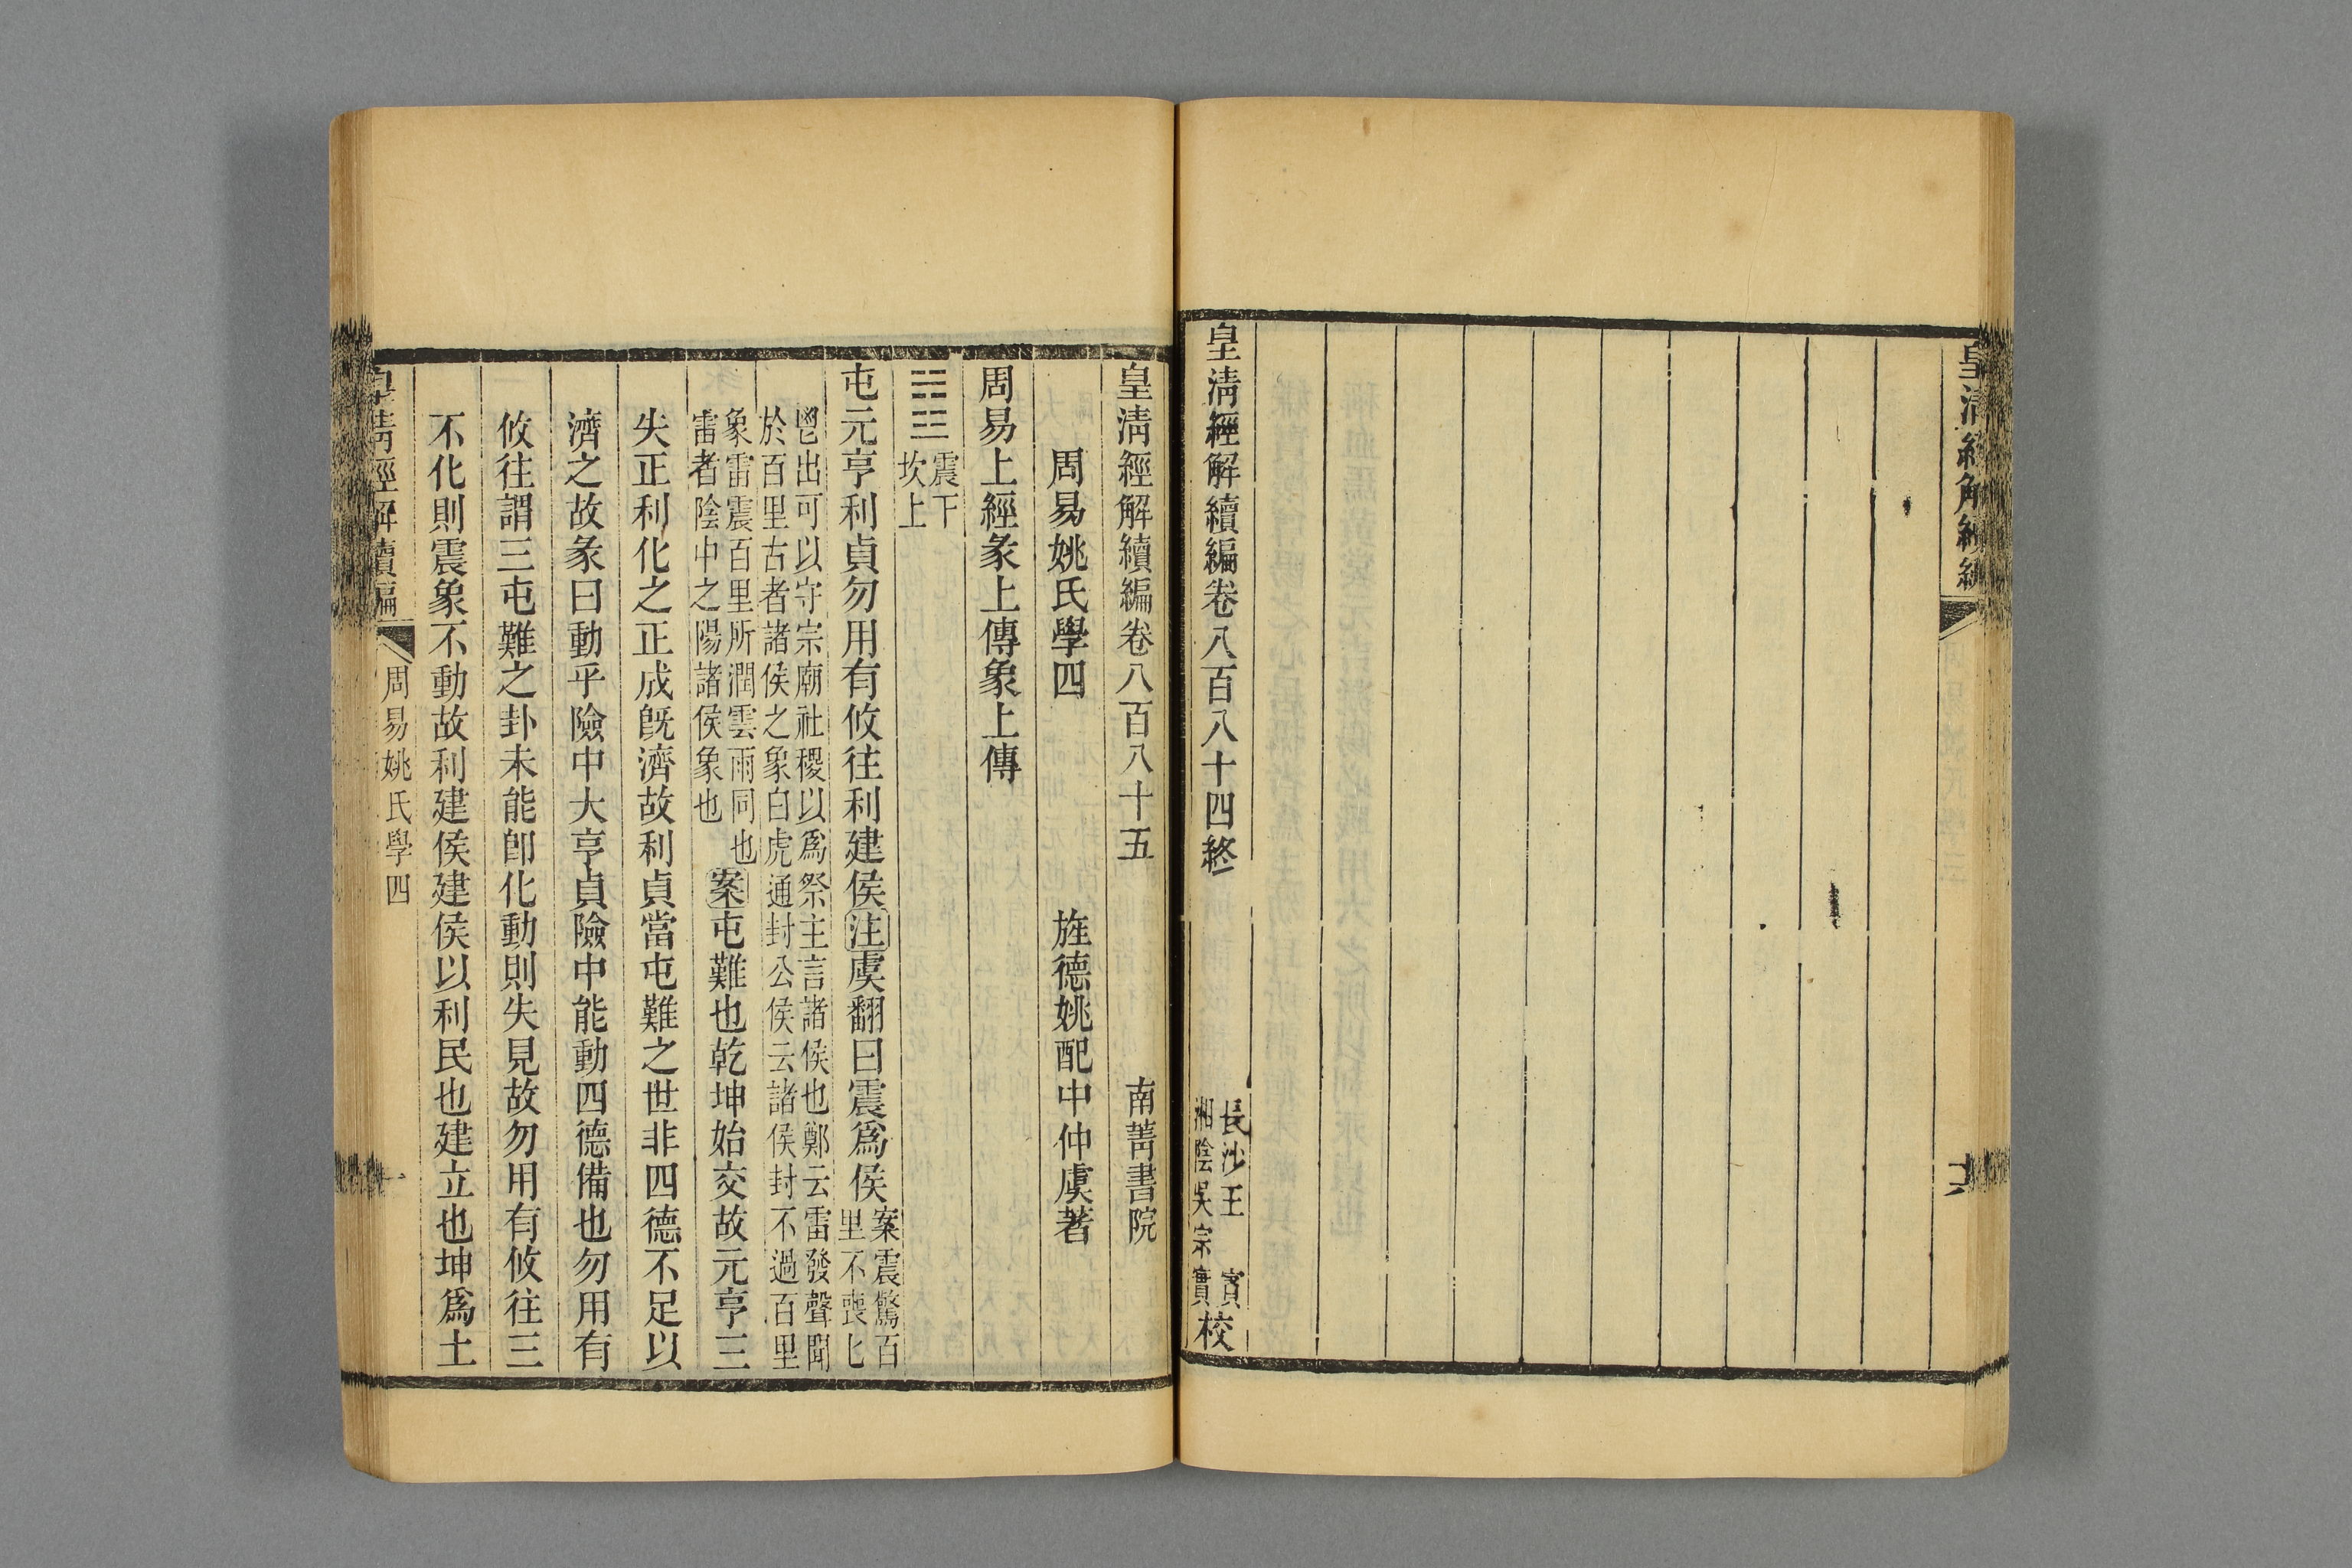 皇清經解續編
六
皇清經解續編卷八百八十四終
長沙王 賓
湘陰吳宗實
校
皇清經解續編卷八百八十五
南菁書院
周易姚氏學四
旌德姚配中仲虞著
周易上經彖上傳象上傳
䷂
震下
坎上
屯元亨利貞勿用有攸往利建侯注虞翻曰震爲侯
案震驚百
里不喪匕
鬯出可以守宗廟社稷以爲祭主言諸侯也鄭云雷發聲聞
於百里古者諸侯之象白虎通封公侯云諸侯封不過百里
象雷震百里所潤雲雨同也
雷者陰中之陽諸侯象也
案屯難也乾坤始交故元亨三
失正利化之正成旣濟故利貞當屯難之世非四德不足以
濟之故彖曰動乎險中大亨貞險中能動四德備也勿用有
攸往謂三屯難之卦未能卽化動則失見故勿用有攸往三
不化則震象不動故利建侯建侯以利民也建立也坤爲土
皇清經解續編
周易姚氏學四
一